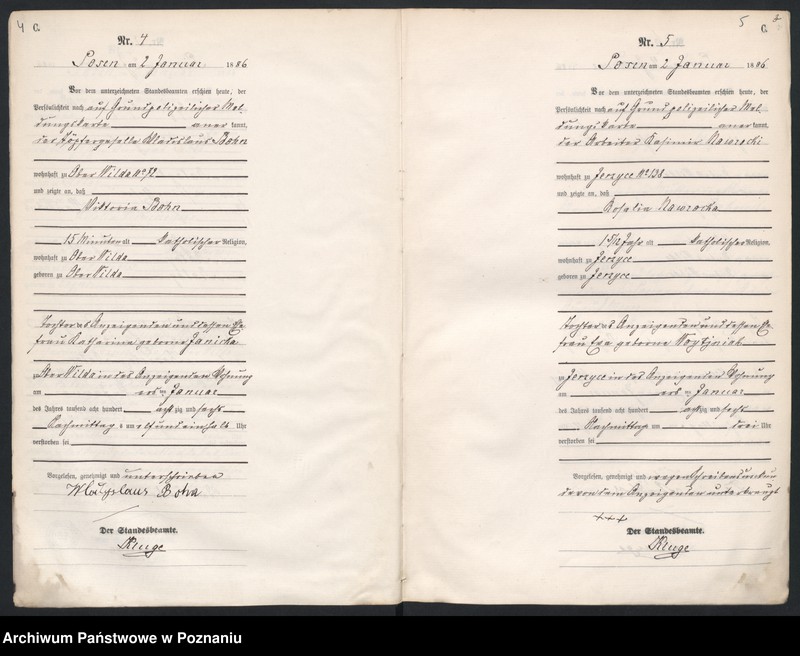 4 C.
Nr. 4
Posen am 2 Januar 1886
Vor dem unterzeichneten Standesbeamten erschien heute, der
Persönlichkeit nach auf Grund polizeilicher Mel-
dungskarte anerkannt,
der Töpfergeselle Wladislaus Bohn
wohnhaft zu Ober Wilda No 72
und zeigte an, daß
Viktoria Bohn
15 Minuten alt katholischer Religion,
wohnhaft zu Ober Wilda
geboren zu Ober Wilda
Tochter des Anzeigenden und dessen Ehe-
frau Katharina geborne Janicka
zu Ober Wilda in des Anzeigenden Wohnung
am ersten Januar
des Jahres tausend acht hundert achtzig und sechs
Nachmittags um elf und einhalb Uhr
verstorben sei
Vorgelesen, genehmigt und unterschrieben
Wladyslaus Bohn
Der Standesbeamte.
Kluge
5 C.
Nr. 5
Posen am 2 Januar 1886
Vor dem unterzeichneten Standesbeamten erschien heute, der
Persönlichkeit nach auf Grund polizeilicher Mel-
dungskarte anerkannt,
der Arbeiter Kasimir Nawrocki
wohnhaft zu Jerzyce No 138
und zeigte an, daß
Rosalia Nawrocka
1 5/12 Jahr alt katholischer Religion,
wohnhaft zu Jerzyce
geboren zu Jerzyce
Tochter des Anzeigenden und dessen Ehe-
frau Eva geborne
zu Jerzyce in des Anzeigenden Wohnung
am ersten Januar
des Jahres tausend acht hundert achtzig und sechs
Nachmittag um drei Uhr
verstorben sei
Vorgelesen, genehmigt und wegen Schreibensunkun-
de von dem Anzeigenden unterkreuzt
+++
Der Standesbeamte.
Kluge
Archiwum Państwowe w Poznaniu